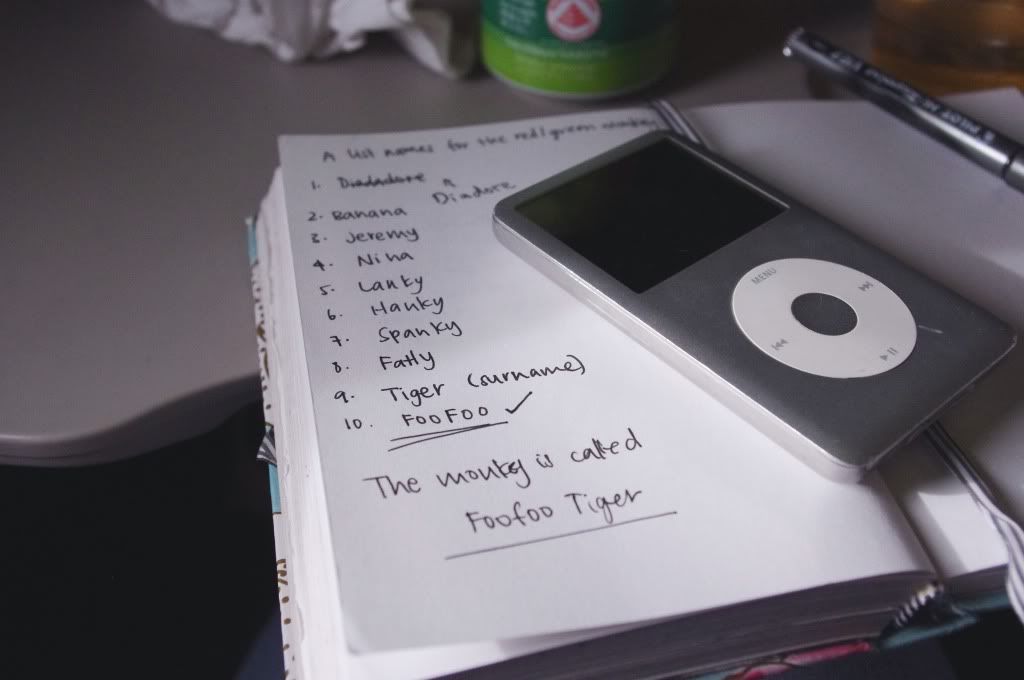 A list names for the red/green monkey
1. Diadadore ^ Diadore
2. Banana
3. Jeremy
4. Nina
5. Lanky
6. Hanky
7. Spanky
8. Fatly
9. Tiger (surname)
10. FooFoo ✓
The monkey is called
Foofoo Tiger
MENU
PILOT